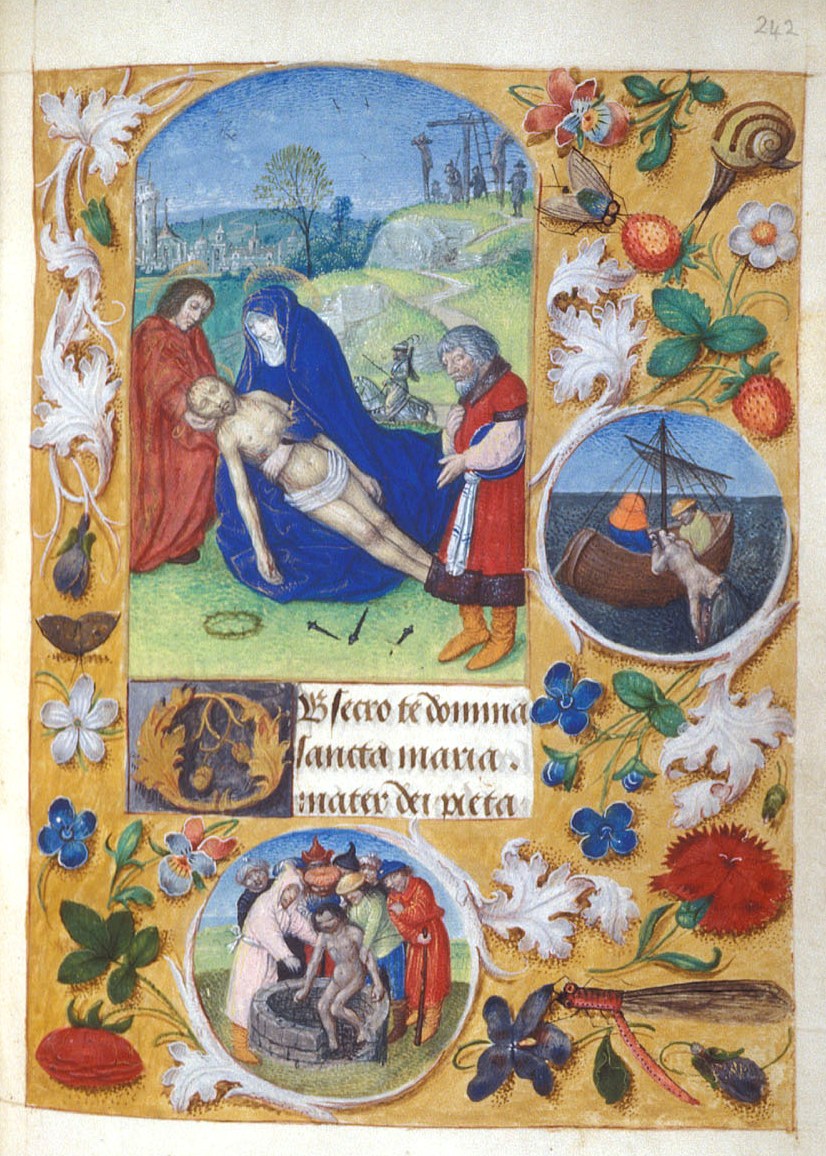 242
OBsecro te domina
sancta maria.
mater dei pieta